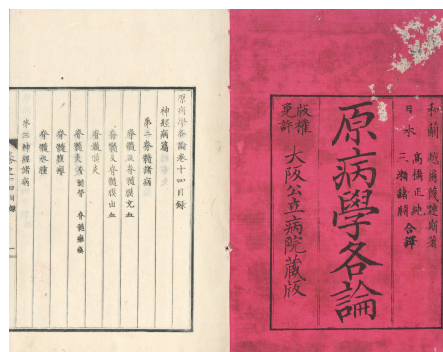 和蘭 著
日本 高橋正純
三瀬諸淵 合譯
原病學各論
版權
免許
大阪公立病院藏版
原病學各論卷十四目録
神經病篇
第二脊髓諸病
脊髓及脊髓膜充血
脊髓及脊髓膜出血
脊髓膜炎
脊髓腫瘍
脊髓水腫
第三神經諸病